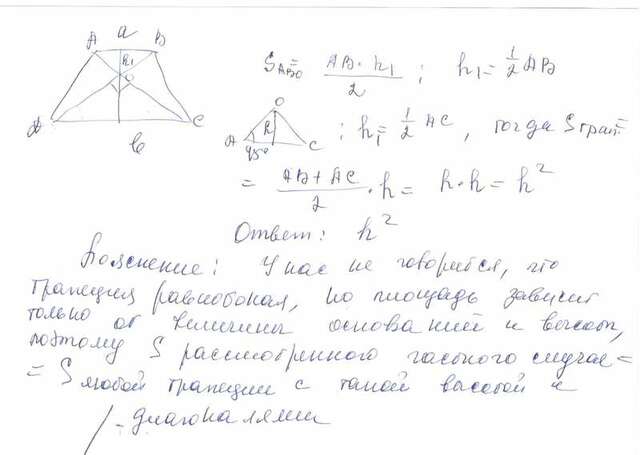 A a B
h₁
S_ABO = AB · h₁ / 2 ; h₁ = 1/2 AB
O
D C
b
O
A h C ; h₁ = 1/2 AC , тогда Sтрап =
45°
= AB + AC / 2 · h = h · h = h²
Ответ: h²
Пояснение: У нас не говорится, что
трапеция равнобокая, но площадь зависит
только от величины оснований и высот,
поэтому S рассмотренного частного случае =
= S любой трапеции с такой высотой и
⊥ диагоналями